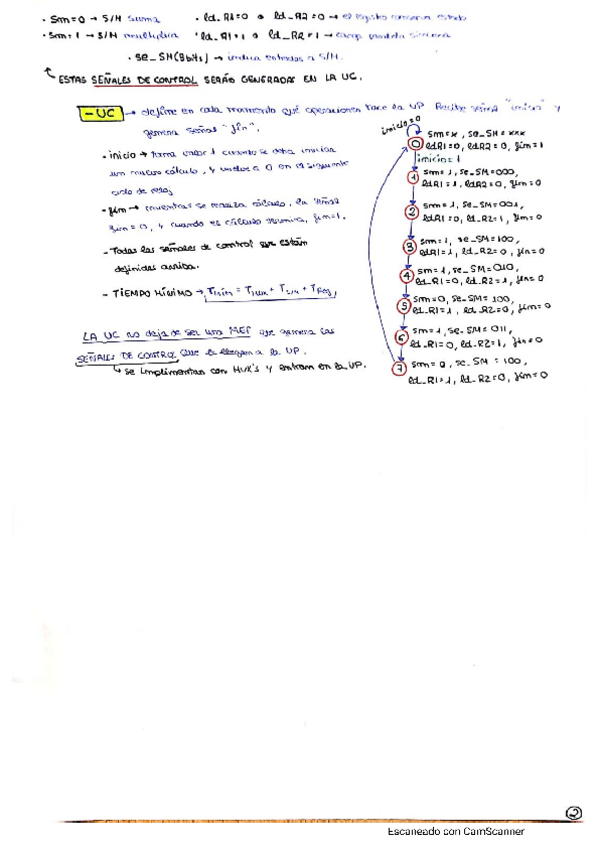 · sm=0 → S/M suma
· ld_R1=0 o ld_R2=0 → el registro conserva estado
· sm=1 → S/M multiplica
ld_R1=1 o ld_R2=1 → carga paralela síncrona
· se_SM(3bits) → indica entradas a S/M.
ESTAS SEÑALES DE CONTROL SERÁN GENERADAS EN LA UC.
- UC → define en cada momento qué operaciones hace la UP. Recibe señal "inicio" y
genera señal "fin".
· inicio → toma valor 1 cuando se deba iniciar
un nuevo cálculo, y vuelve a 0 en el siguiente
ciclo de reloj
· fin → mientras se realiza cálculo, la señal
fin=0, y cuando el cálculo termina, fin=1.
· Todas las señales de control que están
definidas arriba.
- TIEMPO MÍNIMO → Tmín = Tmux + Ts/m + TReg,
LA UC no deja de ser una MEF que genera las
SEÑALES DE CONTROL que le llegan a la UP.
se implementan con MUX's y entran en la UP.
inicio=0
0 sm=x, se_SM=xxx
ldR1=0, ldR2=0, fin=1
inicio=1
1 sm=1, se_SM=000,
ldR1=1, ldR2=0, fin=0
2 sm=1, se_SM=001,
ldR1=0, ld_R2=1, fin=0
3 sm=1, se_SM=100,
ldR1=1, ld_R2=0, fin=0
4 sm=1, se_SM=010,
ld_R1=0, ld_R2=1, fin=0
5 sm=0, se_SM=100,
ld_R1=1, ld_R2=0, fin=0
6 sm=1, se_SM=011,
ld_R1=0, ld_R2=1, fin=0
7 sm=0, se_SM=100,
ld_R1=1, ld_R2=0, fin=0
2
Escaneado con CamScanner